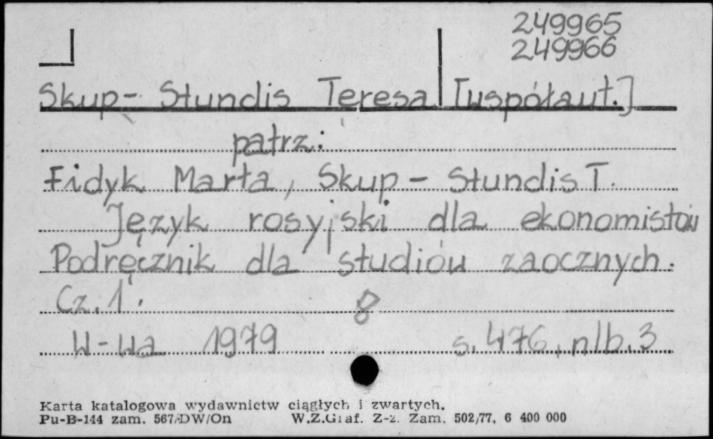 249965
249966
Skup - Stundis Teresa [współaut.]
patrz:
Fidyk Marta, Skup - Stundis T.
Język rosyjski dla ekonomistów
Podręcznik dla studiów zaocznych.
Cz. 1. 8
W-wa 1979 s. 476, nlb. 3
Karta katalogowa wydawnictw ciągłych i zwartych.
Pu-B-144 zam. 567/DW/On W.Z.Graf. Z-2. Zam. 502/77, 6 400 000